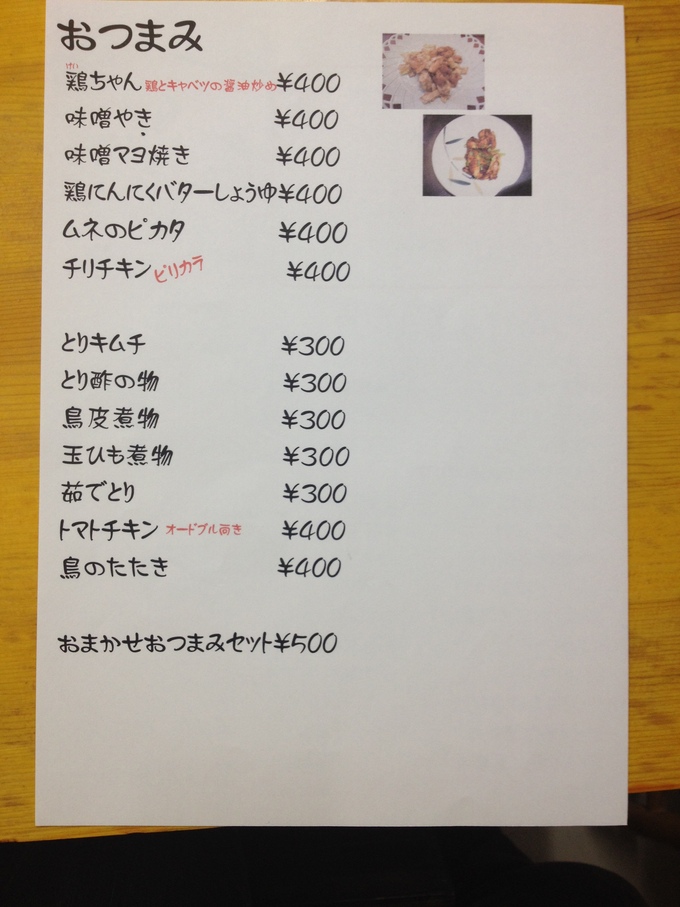 おつまみ
けい
鶏ちゃん 鶏とキャベツの醤油炒め ¥400
味噌やき ¥400
味噌マヨ焼き ¥400
鶏にんにくバターしょうゆ ¥400
ムネのピカタ ¥400
チリチキン ピリカラ ¥400
とりキムチ ¥300
とり酢の物 ¥300
鳥皮煮物 ¥300
玉ひも煮物 ¥300
茹でとり ¥300
トマトチキン オードブル向き ¥400
鳥のたたき ¥400
おまかせおつまみセット ¥500